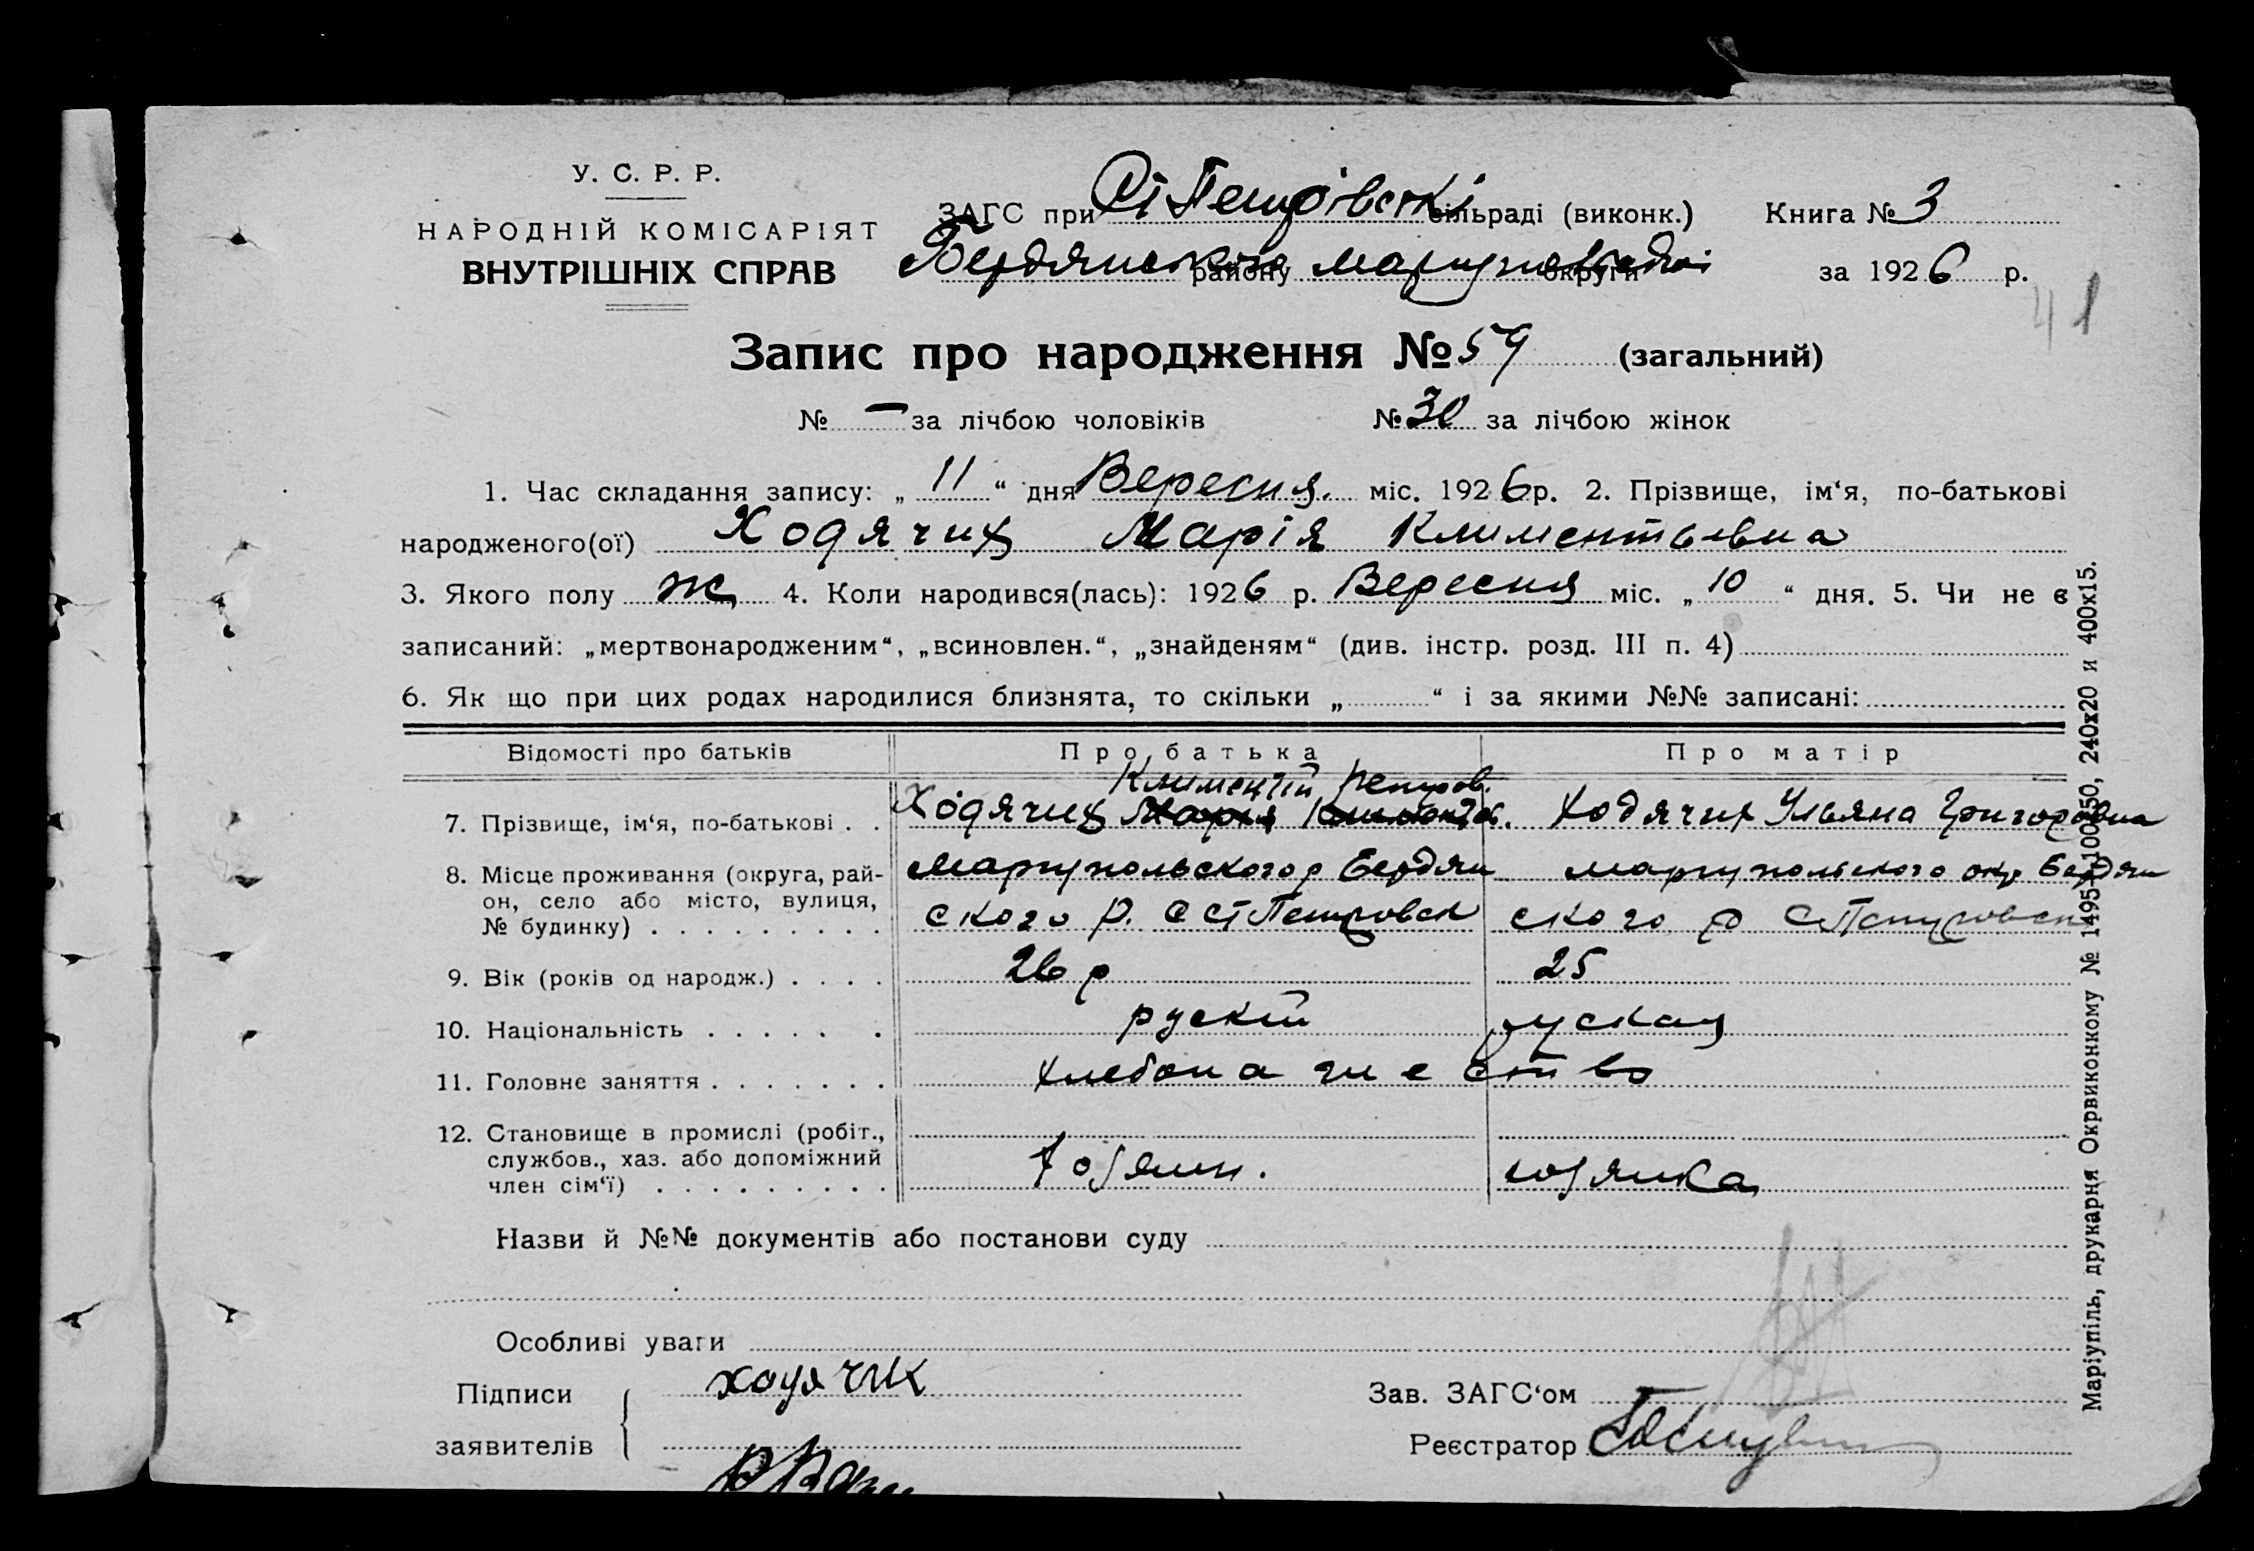 У. С. Р. Р.
НАРОДНІЙ КОМІСАРІЯТ
ВНУТРІШНІХ СПРАВ
ЗАГС при Ст Петрівскі сільраді (виконк.) Книга № 3
Бердянського району Маріупольскоі округи за 1926 р.
41
Запис про народження № 59 (загальний)
№ — за лічбою чоловіків № 30 за лічбою жінок
1. Час складання запису: „ 11 “ дня Вересня. міс. 1926 р. 2. Прізвище, ім‘я, по-батькові
народженого(ої) Ходячих Марія Климентьевна
3. Якого полу Ж 4. Коли народився(лась): 1926 р. Вересня міс. „ 10 “ дня. 5. Чи не є
записаний: „мертвонародженим“, „всиновлен.“, „знайденям“ (див. інстр. розд. III п. 4)
6. Як що при цих родах народилися близнята, то скільки „ “ і за якими №№ записані:
Відомості про батьків Про батька Про матір
Климентій Петров.
7. Прізвище, ім‘я, по-батькові . . Ходячих Мария Климентьев. Ходячих Ульяна Григоровна
8. Місце проживання (округа, рай- Мариупольского р Бердян Мариупольского окр Бердян
он, село або місто, вулиця,
№ будинку) . . . . . . . . . ского р. с Ст Петровск ского р С Петровск
9. Вік (років од народж.) . . . . 26 р 25
10. Національність . . . . . . рускій руская
11. Головне заняття . . . . . . . хлебопашество
12. Становище в промислі (робіт.,
службов., хаз. або допоміжний
член сім‘ї) . . . . . . . . . хозяин. хозяйка
Назви й №№ документів або постанови суду
Особливі уваги
Підписи ходячик Зав. ЗАГС‘ом
заявителів Реєстратор
Маріупіль, друкарня Окрвиконкому № 1495—10050, 240х20 и 400х15.